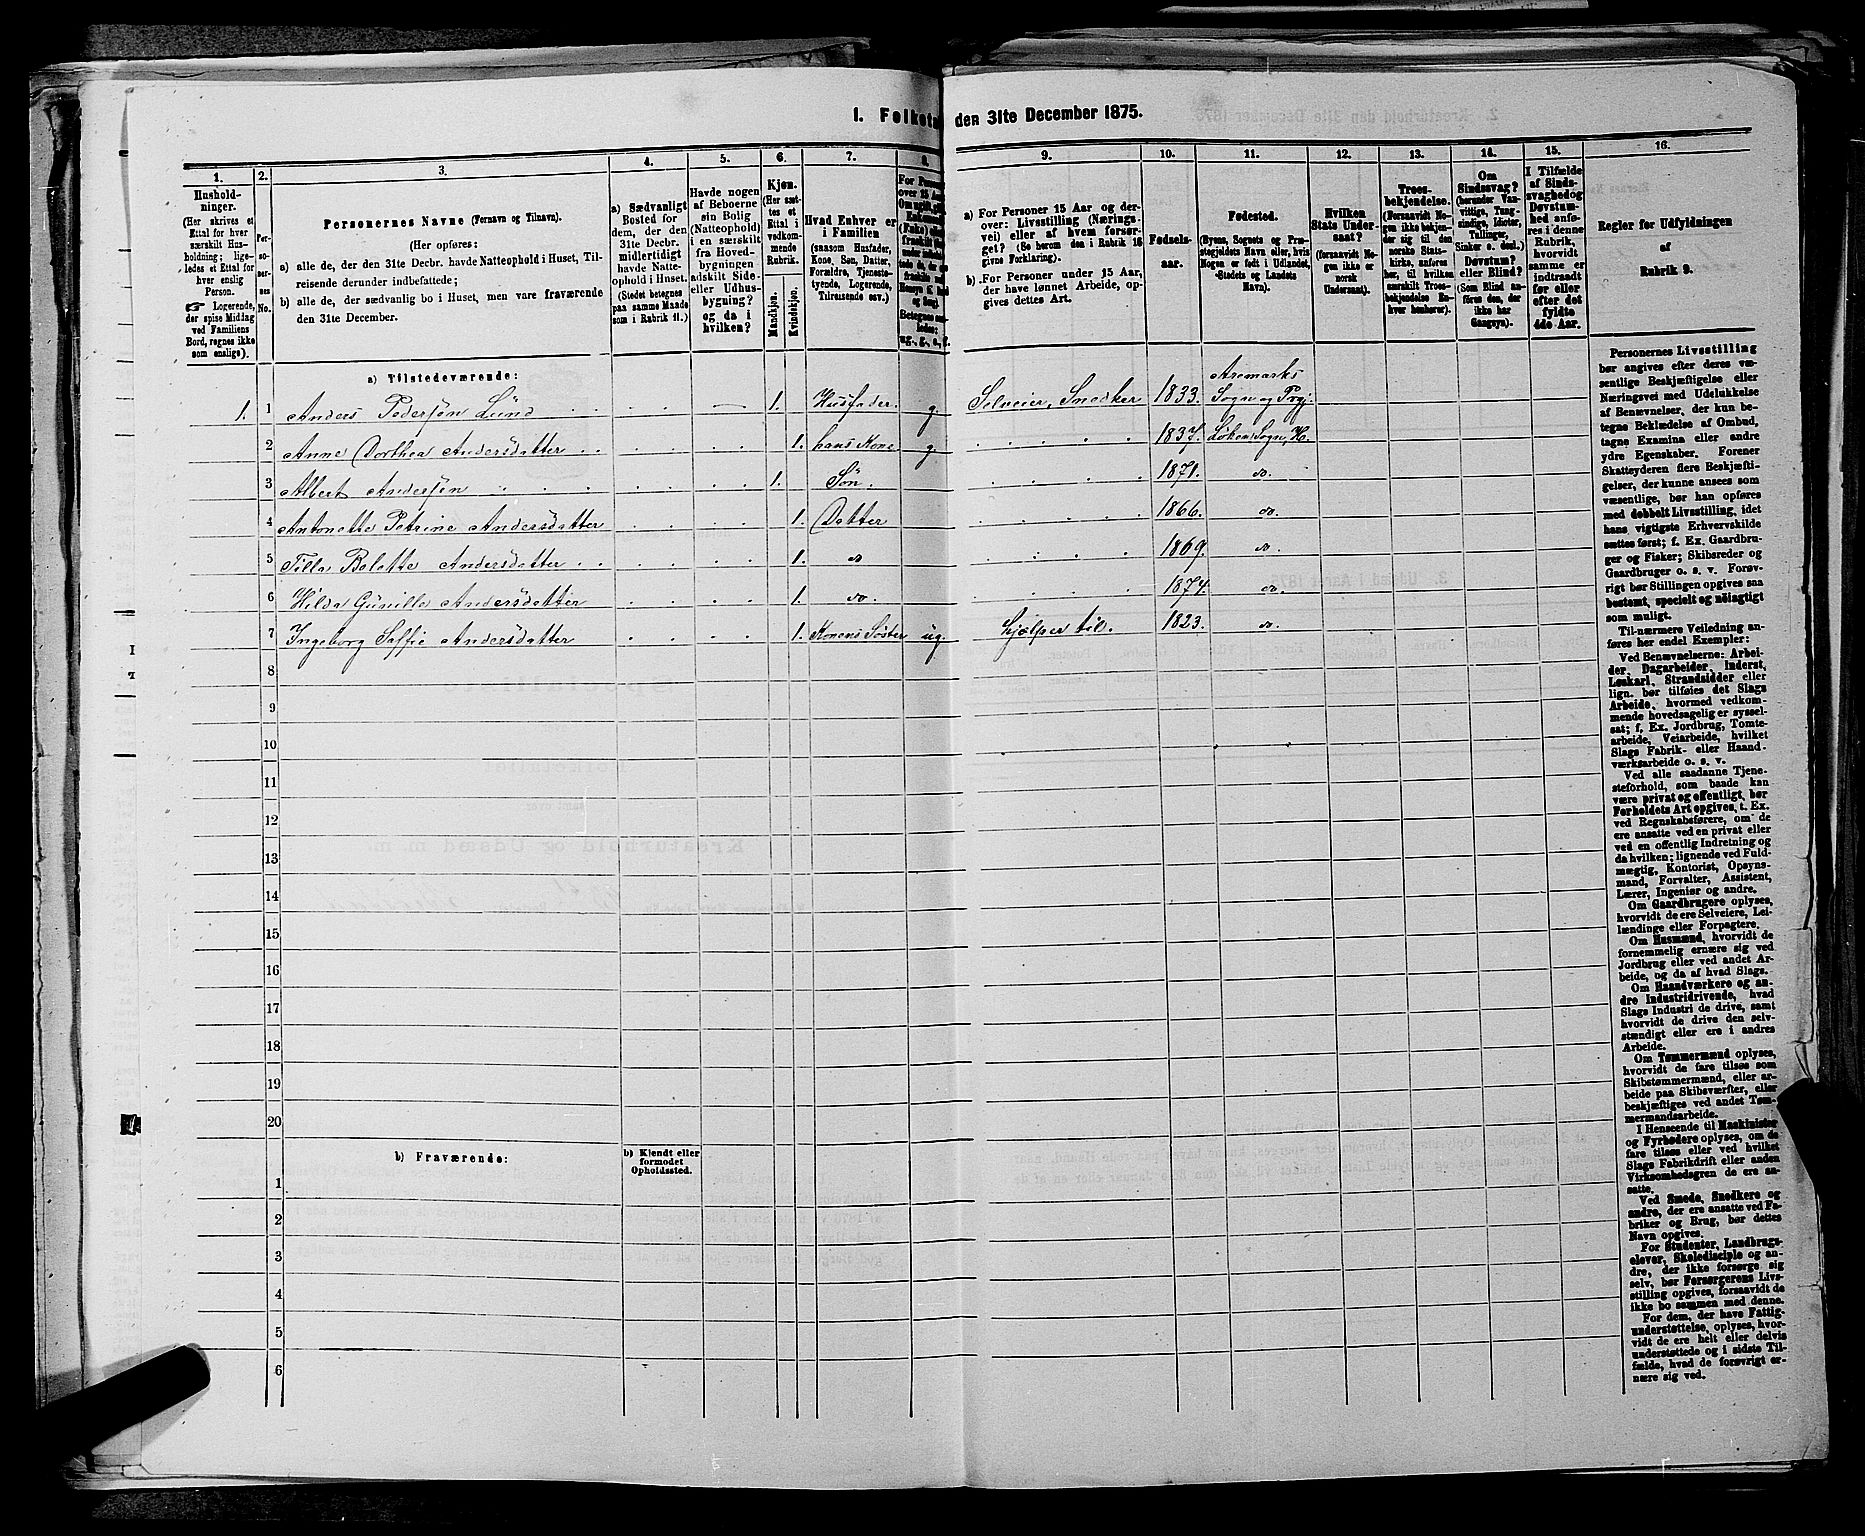 I. Folketæ
den 31te December 1875.
1.
2.
3.
4.
5.
6.
7.
8.
9.
10.
11.
12.
13.
14.
15.
16.
Hushold-
ninger.
(Her skrives et
Ettal for hver
særskilt Hus-
holdning; lige-
ledes et Ettal for
hver enslig
Person.
☞ Logerende,
der spise Middag
ved Familiens
Bord, regnes ikke
som enslige).
Per-
so-
ner-
nes
No.
Personernes Navne (Fornavn og Tilnavn).
(Her opføres:
a) alle de, der den 31te Decbr. havde Natteophold i Huset, Til-
reisende derunder indbefattede;
b) alle de, der sædvanlig bo i Huset, men vare fraværende
den 31te December.
a) Sædvanligt
Bosted for
dem, der den
31te Decbr.
midlertidigt
havde Natte-
ophold i Huset.
(Stedet betegnes
paa samme Maade
som i Rubrik 11.)
Havde nogen
af Beboerne
sin Bolig
(Natteophold)
i en særskilt
fra Hoved-
bygningen
adskilt Side-
eller Udhus-
bygning?
og da i
hvilken?
Kjøn.
(Her sæt-
tes et
Ettal i
vedkom-
mende
Rubrik.
Mandkjøn.
Kvindekjøn.
Hvad Enhver er
i Familien
(saasom Husfader,
Kone, Søn, Datter,
Forældre, Tjeneste-
tyende, Logerende,
Tilreisende osv.)
For Person
over 15 Aar
Betegnes saa-
ledes:
ug., g., e., f.
a) For Personer 15 Aar og der-
over: Livsstilling (Nærings-
vei) eller af hvem forsør-
get? (Se herom den i Rubrik 16
givne Forklaring).
b) For Personer under 15 Aar,
der have lønnet Arbeide, op-
gives dettes Art.
Fødsels-
aar.
Fødested.
(Byens, Sognets og Præ-
stegjeldets Navn eller, hvis
Nogen er født i Udlandet,
Stedets og Landets
Navn).
Hvilken
Stats Under-
saat?
(forsaavidt No-
gen ikke er
norsk
Undersaat).
Troes-
bekjendelse.
(Forsaavidt No-
gen ikke bekjen-
der sig til den
norske Stats-
kirke, anføres
her, til hvilken
særskilt Troes-
bekjendelse En-
hver henhører).
Om
Sindssvag?
(herunder Van-
vittige, Tung-
sindige, Idioter,
Tullinger,
Sinker o. desl.)
Døvstum?
eller Blind?
(Som Blind an-
føres den, der
ikke har
Gangsyn).
I Tilfælde
af Sinds-
svaghed og
Døvstum-
hed anfø-
res i denne
Rubrik,
hvorvidt
samme er
indtraadt
før eller
efter det
fyldte
4de Aar.
Regler for Udfyldningen
af
Rubrik 9.
a) Tilstedeværende:
1. 1 Anders Pedersøn Lund 1. Husfader g. Selveier, Snedker 1833. Aremarks Sogn og Prgj.
2 Anne Dorthea Andersdatter 1. hans Kone g. 1837. Løken Sogn, H.
3 Albert Andersøn 1. Søn. 1871. do.
4 Antonette Petrine Andersdatter 1. Datter 1866. do.
5 Tilla Bolette Andersdatter 1. do 1869. do.
6 Hilda Gunille Andersdatter 1. do. 1874. do.
7 Ingeborg Soffie Andersdatter 1. Konens Søster ug. hjælper til. 1823. do
8
9
10
11
12
13
14
15
16
17
18
19
20
b) Fraværende:
b) Kjendt eller
formodet
Opholdssted.
1
2
3
4
5
6
Personernes Livsstilling
bør angives efter deres væ-
sentlige Beskjæftigelse eller
Næringsvei med Udelukkelse
af Benævnelser, der kun be-
tegne Beklædelse af Ombud,
tagne Examina eller andre
ydre Egenskaber. Forener
Skatteyderen flere Beskjæfti-
gelser, der kunne ansees som
væsentlige, bør han opføres
med dobbelt Livsstilling, idet
hans vigtigste Erhvervskilde
sættes først; f. Ex. Gaardbru-
ger og Fisker; Skibsreder og
Gaardbruger o. s. v. Forøv-
rigt bør Stillingen opgives saa
bestemt, specielt og nøiagtigt
som muligt.
Til nærmere Veiledning an-
føres her endel Exempler:
Ved Benævnelserne: Arbei-
der, Dagarbeider, Inderst,
Løskarl, Strandsidder eller
lign. bør tilføies det Slags
Arbeide, hvormed vedkom-
mende hovedsagelig er syssel-
sat; f. Ex. Jordbrug, Tomte-
arbeide, Veiarbeide, hvilket
Slags Fabrik- eller Haand-
værksarbeide o. s. v.
Ved alle saadanne Tjene-
steforhold, som baade kan
være privat og offentligt, bør
Forholdets Art opgives, t. Ex.
ved Regnskabsførere, om de
ere ansatte ved en privat eller
ved en offentlig Indretning og
da hvilken; lignende ved Fuld-
mægtig, Kontorist, Opsyns-
mand, Forvalter, Assistent,
Lærer, Ingeniør og andre.
Om Gaardbrugere oplyses,
hvorvidt de ere Selveiere, Lei-
lændinge eller Forpagtere.
Om Husmænd, hvorvidt de
fornemmelig ernære sig ved
Jordbrug eller ved andet Ar-
beide, og da af hvad Slags.
Om Haandværkere og an-
dre Industridrivende, hvad
Slags Industri de drive, samt
hvorvidt de drive den selv-
stændigt eller ere i andres
Arbeide.
Om Tømmermænd oplyses,
hvorvidt de fare tilsøs som
Skibstømmermænd, eller ar-
beide paa Skibsværfter, eller
beskjæftiges ved andet Tøm-
mermandsarbeide.
I Henseende til Maskinister
og Fyrbødere oplyses, om de
fare tilsøs eller ved hvilket
Slags Fabrikdrift eller anden
Virksomhedsgren de ere an-
satte.
Ved Smede, Snedkere og
andre, der ere ansatte ved Fa-
briker og Brug, bør dettes
Navn opgives.
For Studenter, Landbrugs-
elever, Skoledisciple og an-
dre, der ikke forsørge sig
selv, bør Forsørgerens Livs-
stilling opgives, forsaavidt de
ikke bo sammen med denne.
For dem, der have Fattig-
understøttelse, oplyses, hvor-
vidt de ere helt eller delvis
understøttede og i sidste Til-
fælde, hvad de forøvrigt er-
nære sig ved.